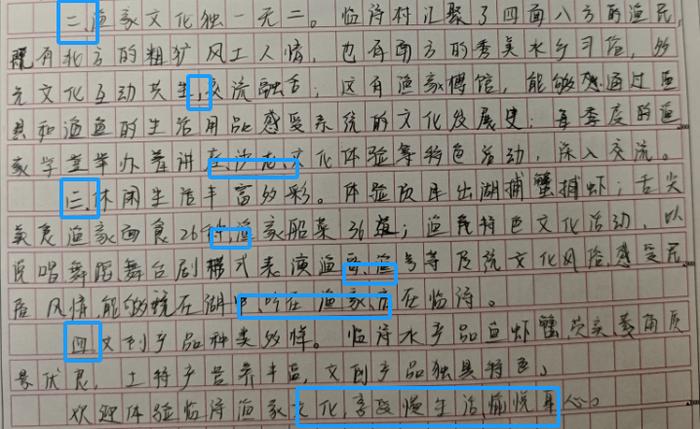 二、渔家文化独一无二。临浔村汇聚了四面八方的渔民,
既有北方的粗犷风土人情,也有南方的秀美水乡习俗,多
元文化互动共生,交流融合;这有渔家博馆,能够通过渔
具和渔鱼的生活用品感受系统的文化发展史;每季度的渔
家学堂举办着讲座、沙龙、文化体验等特色活动,深入交流。
三、休闲生活丰富多彩。体验项目出湖捕蟹捕虾;舌尖
美食渔家面食26种,渔家船菜36道;渔民特色文化活动,以
民唱舞蹈舞台剧模式表演渔歌、渔号等传统文化风俗,感受民
居风情,能够玩在湖中、吃在渔家、住在临浔。
四、文创产品种类多样。临浔水产品鱼虾蟹,芡实菱角质
量优良,土特产营养丰富,文创产品独具特色。
欢迎体验临浔渔家文化,享受慢生活,愉悦身心。